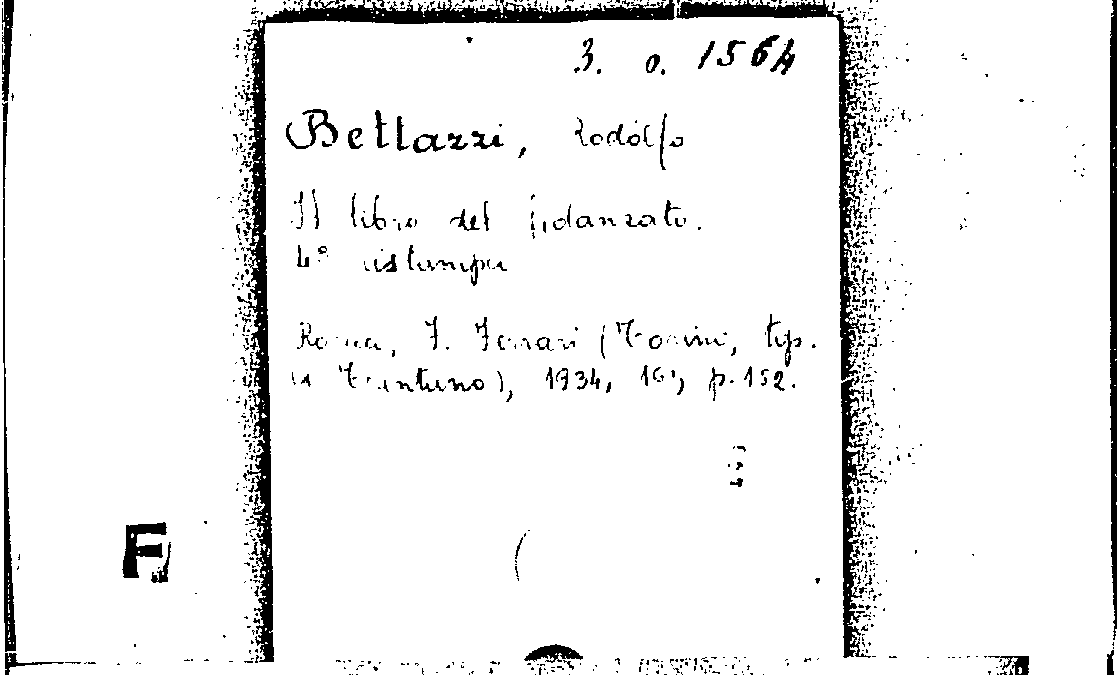 3. o. 1564
Bettazzi, Rodolfo
Il libro del fidanzato.
4ª ristampa
Roma, F. Ferrari (Torino, tip.
), 1934, 16°, p. 152.
F